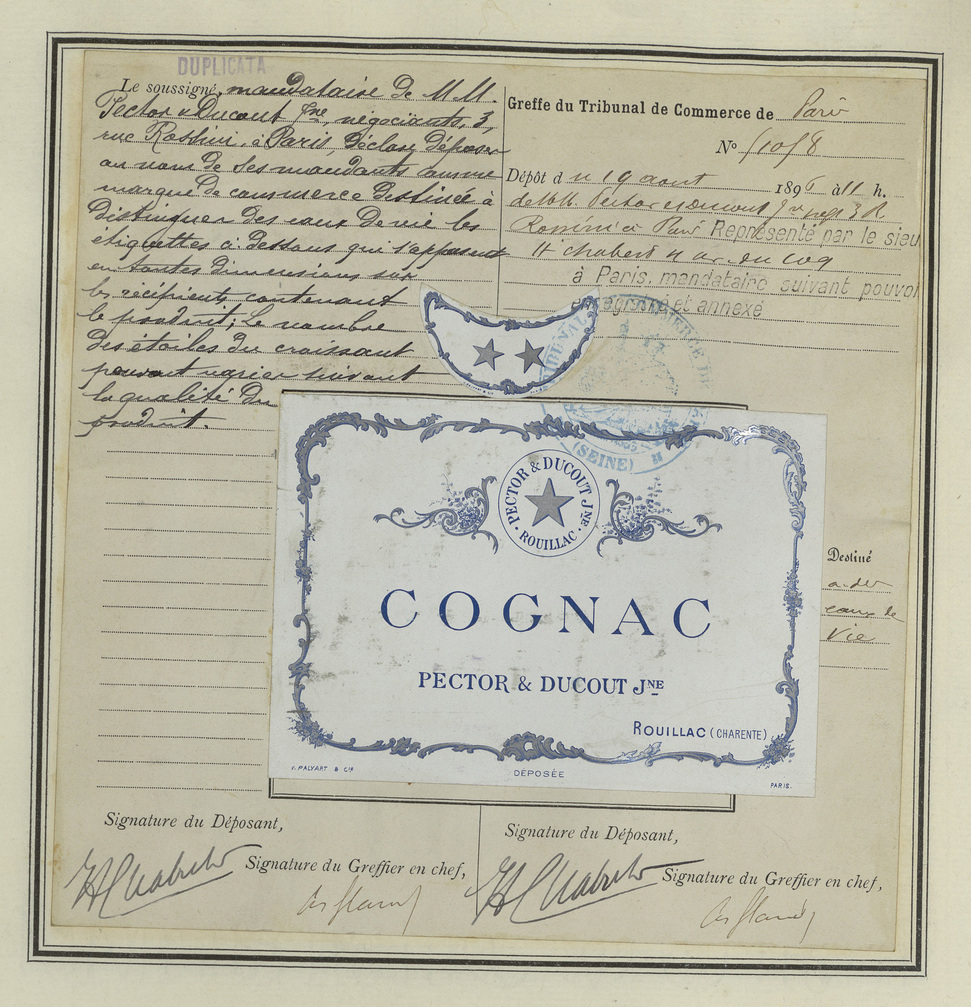 DUPLICATA
Le soussigné, mandataire de M.M.
Pector & Ducout Jne, négociants, 3,
rue Rossini, à Paris, déclare déposer
au nom de ses mandants comme
marque de commerce destinée à
distinguer des eaux de vie les
étiquettes ci-dessous qui s'apposent
en toutes dimensions sur
les récipients contenant
le produit; le nombre
des étoiles du croissant
pouvant varier suivant
la qualité du
produit.
Greffe du Tribunal de Commerce de Paris
No
Dépôt d u 19 août 1896 à 11 h.
de MM. Pector & Ducout Jne 3 R
Rossini à Paris Représenté par le sieu
H Chabert
à Paris, mandataire suivant pouvoi
et annexé
(SEINE)
PECTOR & DUCOUT JNE
ROUILLAC
COGNAC
PECTOR & DUCOUT JNE
ROUILLAC (CHARENTE)
V. PALYART & Cie
DÉPOSÉE
PARIS.
Destiné
à des
eaux de
Vie
Signature du Déposant,
HChabert
Signature du Greffier en chef,
Signature du Déposant,
HChabert
Signature du Greffier en chef,